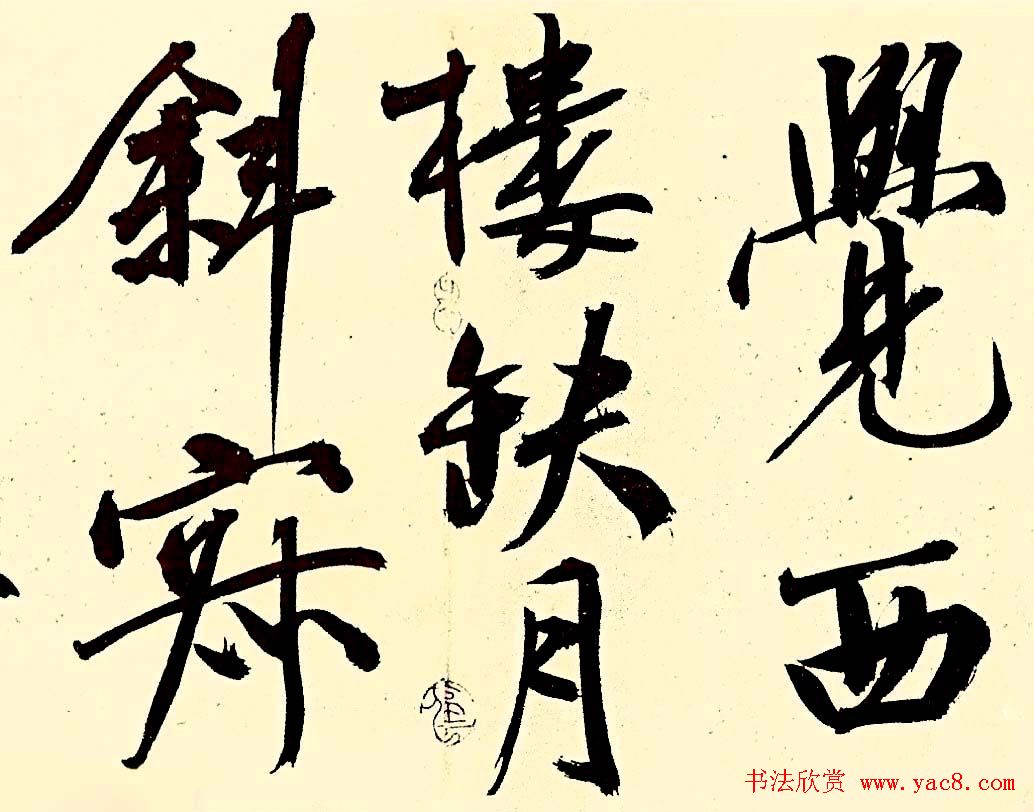 覺西
樓缺月
斜
书法欣赏 www.yac8.com